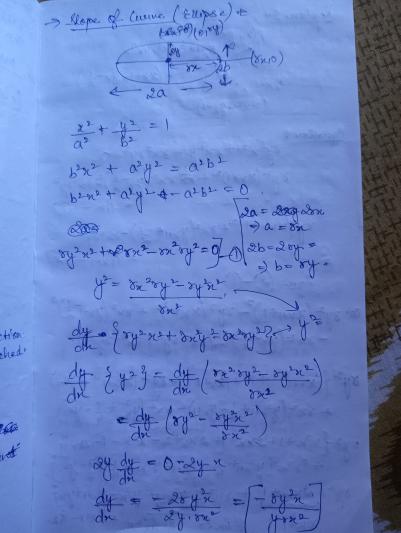 → Slope of Curve (Ellipse)
(0, ry)
ry
rx
2b
(rx, 0)
2a
x²/a² + y²/b² = 1
b²x² + a²y² = a²b²
b²x² + a²y² - a²b² = 0
2a = 2rx
⇒ a = rx
2b = 2ry
⇒ b = ry
ry²x² + rx²y² - rx²ry² = 0 ] - ①
y² = (rx²ry² - ry²x²)/rx²
dy/dx = {ry²x² + rx²y² - rx²ry²} → y² =
dy/dx {y²} = dy/dx ((rx²ry² - ry²x²)/rx²)
= dy/dx (ry² - ry²x²/rx²)
2y dy/dx = 0 - 2y x
dy/dx = -2ry²x/(2y·rx²) = [-ry²x/(y rx²)]